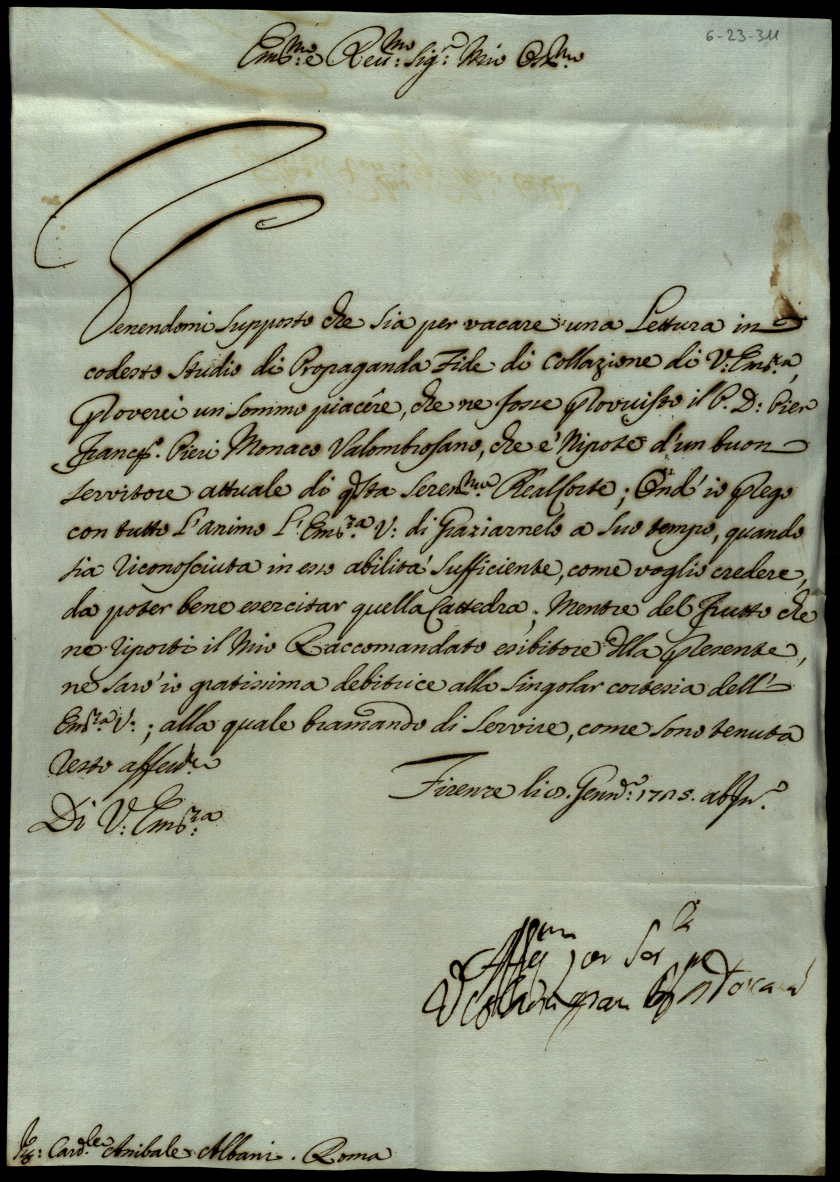 6-23-311
Em.mo e Reu.mo Sig.r Mio Oss.mo
Venendomi supposto che sia per vacare una Lettura in
codesto Studio di Propaganda Fide di Collazione di V: Em.za,
Proverei un sommo piacére, che ne fosse provvisto il P. D: Pier
Franc.o Pieri Monaco Valombrosano, che è Nipote d'un buon
servitore attuale di q.sta Seren.ma Real Corte; Ond' io prego
con tutto l'animo l'Em.za V: di Graziarnelo a suo tempo, quando
sia riconosciuta in esso abilità sufficiente, come voglio credere,
da poter bene esercitar quella Cattedra; Mentre del frutto che
ne riporti il Mio Raccomandato esibitore d.lla presente,
ne sarò io gratissima debitrice alla singolar cortesia dell'
Em.za V:; alla quale bramando di servire, come sono tenuta
resto affett.ma
Di V: Em.za
Firenze li Genn.o ab In.e
Aff.ma per ser
gran
Sig: Card.le Anibale Albani. Roma